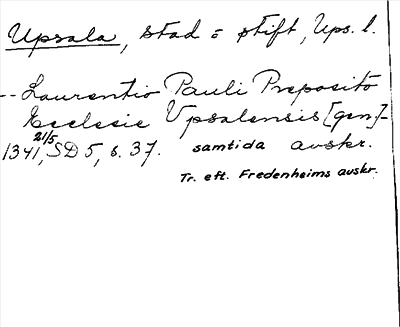 Upsala, stad o stift, Ups. l.
-- Laurentio Pauli Preposito
Ecclesie Vpsalensis [gen]-
1341 21/5, SD 5, s. 37. samtida avskr.
Tr. eft. Fredenheims avskr.